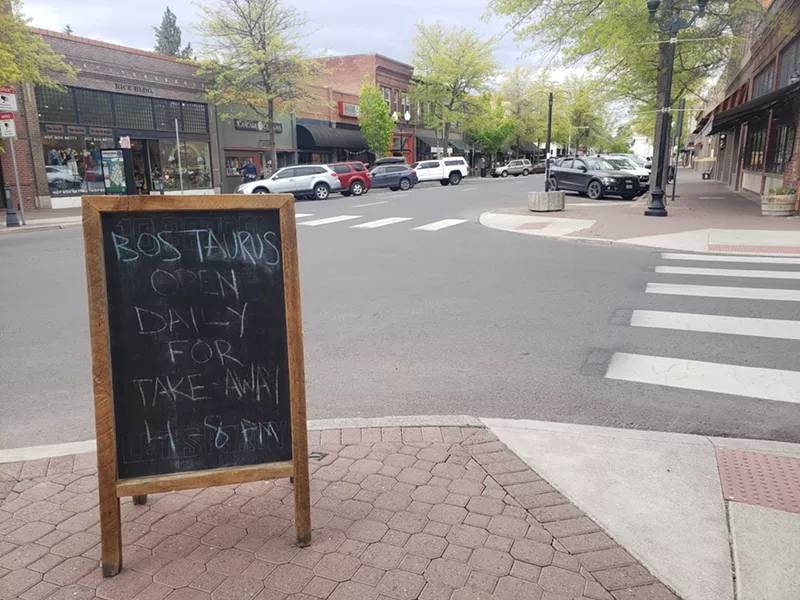 RICE BLDG.
BOS TAURUS
OPEN
DAILY
FOR
TAKE-AWAY
4 8 PM